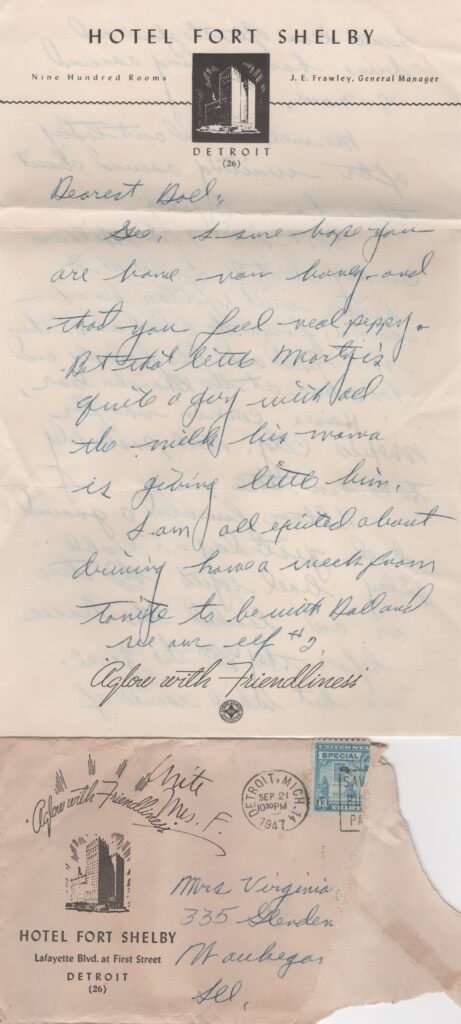 HOTEL FORT SHELBY
Nine Hundred Rooms
J. E. Frawley, General Manager
DETROIT
(26)
Dearest Doll,
Gee, I sure hope you
are home now honey and
that you feel real peppy.
Bet that little Marty is
quite a guy with all
the milk his mama
is giving little him.
I am all excited about
driving home a week from
tonite to be with Doll and
see our elf #2.
Aglow with Friendliness
Aglow with Friendliness
Write
Mrs. F.
DETROIT, MICH. 14
SEP 21
1030PM
1947
UNITED STATES
SPECIAL
13
SAV
PA
HOTEL FORT SHELBY
Lafayette Blvd. at First Street
DETROIT
(26)
Mrs Virginia
335
Waukegan
Ill.